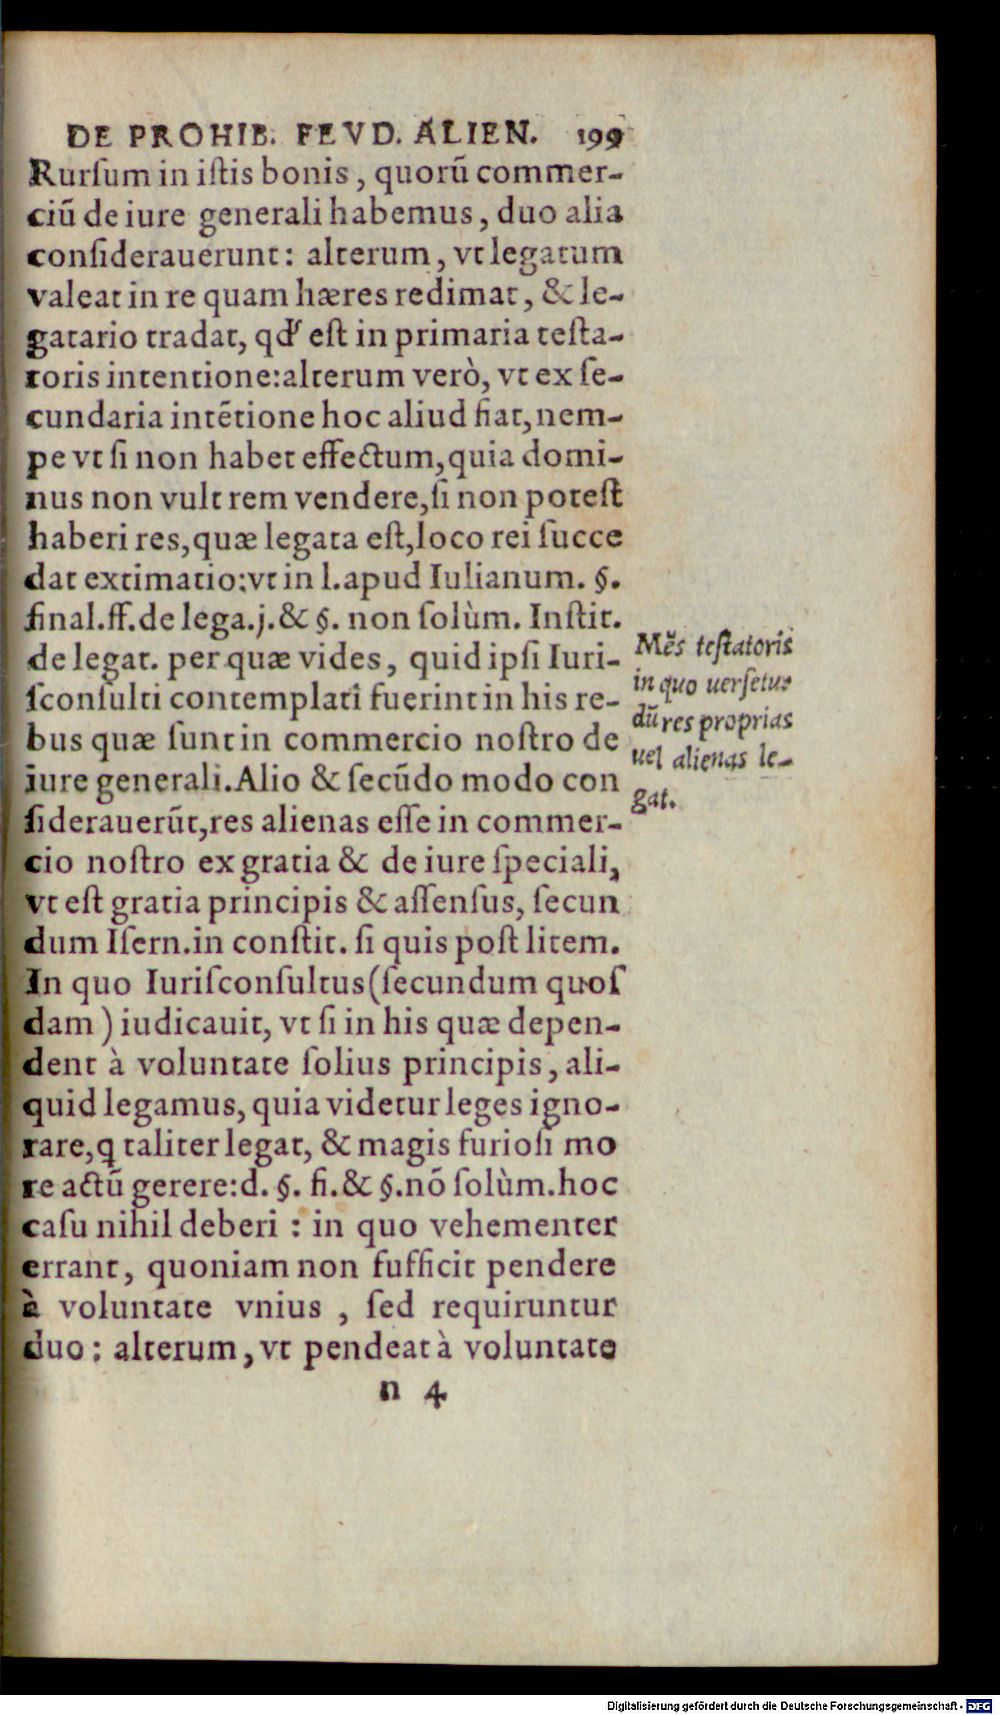 DE PROHIB. FEVD. ALIEN. 199
Rurſum in iſtis bonis, quorũ commer-
ciũ de iure generali habemus, duo alia
conſiderauerunt: alterum, vt legatum
valeat in re quam hæres redimat, & le-
gatario tradat, qđ eſt in primaria teſta-
toris intentione:alterum verò, vt ex ſe-
cundaria intẽtione hoc aliud fiat, nem-
pe vt ſi non habet effectum, quia domi-
nus non vult rem vendere, ſi non poteſt
haberi res, quæ legata eſt, loco rei ſucce
dat extimatio:vt in l.apud Iulianum. §.
final.ff.de lega.j.& §. non ſolùm. Inſtit.
de legat. per quæ vides, quid ipſi Iuri-
ſconſulti contemplati fuerint in his re-
bus quæ ſunt in commercio noſtro de
iure generali. Alio & ſecũdo modo con
ſiderauerũt, res alienas eſſe in commer-
cio noſtro ex gratia & de iure ſpeciali,
vt eſt gratia principis & aſſenſus, ſecun
dum Iſern.in conſtit. ſi quis poſt litem.
In quo Iuriſconſultus (ſecundum quoſ
dam) iudicauit, vt ſi in his quæ depen-
dent à voluntate ſolius principis, ali-
quid legamus, quia videtur leges igno-
rare, q taliter legat, & magis furioſi mo
re actũ gerere:d. §. fi.& §.nõ ſolùm.hoc
caſu nihil deberi : in quo vehementer
errant, quoniam non ſufficit pendere
à voluntate vnius , ſed requiruntur
duo: alterum, vt pendeat à voluntate
n 4
Mẽs teſtatoris
in quo uerſetur
dũ res proprias
uel alienas le-
gat.
Digitalisierung gefördert durch die Deutsche Forschungsgemeinschaft - DFG